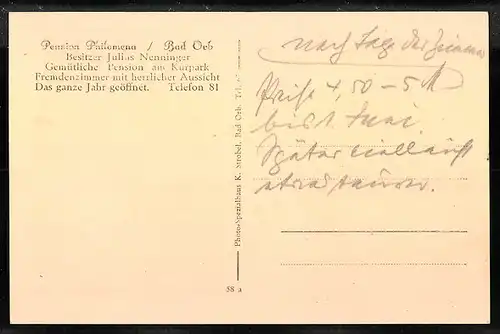 Pension Philomena / Bad Orb
Besitzer Julius Nenninger
Gemütliche Pension am Kurpark
Fremdenzimmer mit herrlicher Aussicht
Das ganze Jahr geöffnet. Telefon 81
nach Lage der Zimmer
Preise 4,50 – 5 M
bis 1. Juni.
Später vielleicht
etwas teurer.
Photo-Spezialhaus K. Strobel, Bad Orb. Tel.
58 a